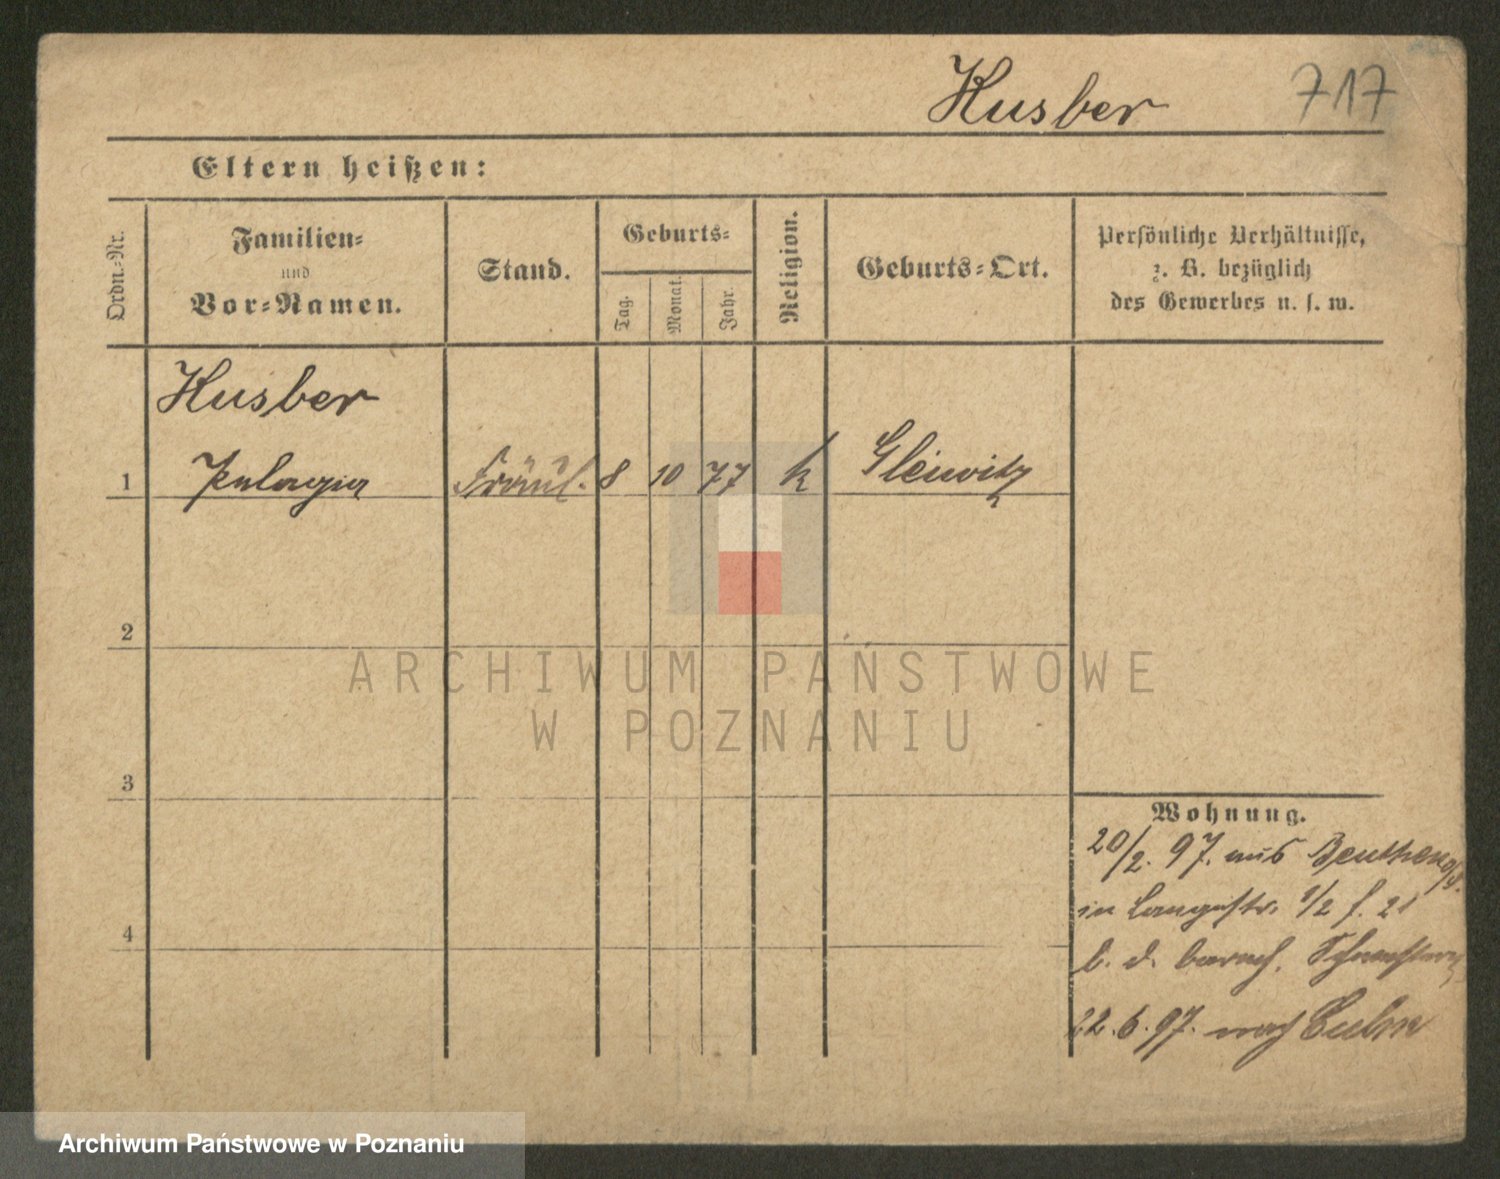 Husber 717
Eltern heißen:
Ordn.-Nr.
Familien-
und
Vor-Namen.
Stand.
Geburts-
Tag.
Monat.
Jahr.
Religion.
Geburts-Ort.
Persönliche Verhältnisse,
z. B. bezüglich
des Gewerbes u. s. w.
Husber
1 Pelagia Fräul. 8 10 77 k Gleiwitz
2
ARCHIWUM PAŃSTWOWE
W POZNANIU
3
Wohnung.
20/2. 97. aus Beuthen o/S.
in Langestr. 1/2 f. 21
4
b. d.
22.6.97. nach Culm
Archiwum Państwowe w Poznaniu